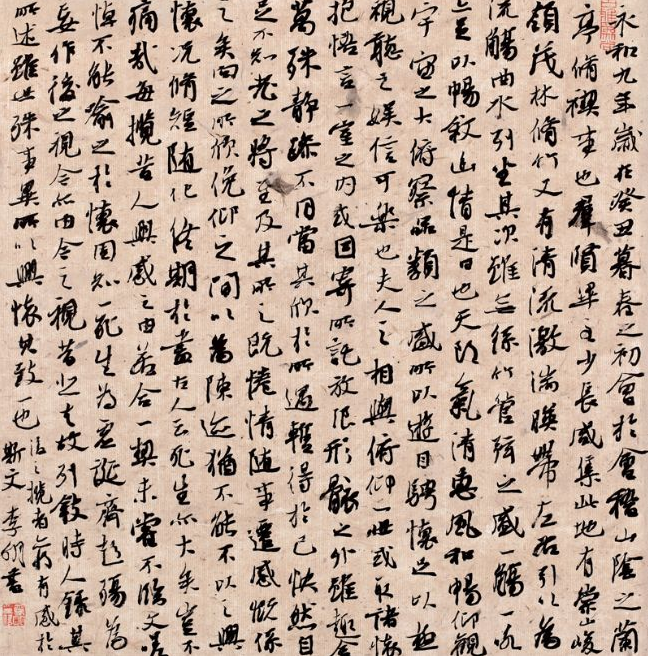 永和九年歲在癸丑暮春之初會於會稽山陰之蘭
亭脩禊事也羣賢畢至少長咸集此地有崇山峻
領茂林脩竹又有清流激湍暎帶左右引以為
流觴曲水列坐其次雖無絲竹管弦之盛一觴一詠
亦足以暢敘幽情是日也天朗氣清惠風和暢仰觀
宇宙之大俯察品類之盛所以遊目騁懷足以極
視聽之娛信可樂也夫人之相與俯仰一世或取諸懷
抱悟言一室之內或因寄所託放浪形骸之外雖趣舍
萬殊靜躁不同當其欣於所遇暫得於己快然自
足不知老之將至及其所之既惓情隨事遷感慨係
之矣向之所欣俛仰之間以為陳迹猶不能不以之興
懷況脩短隨化終期於盡古人云死生亦大矣豈不
痛哉每攬昔人興感之由若合一契未嘗不臨文嗟
悼不能喻之於懷固知一死生為虛誕齊彭殤為
妄作後之視今亦由今之視昔悲夫故列敘時人錄其
所述雖世殊事異所以興懷其致一也
後之攬者亦有感於
斯文 李 書